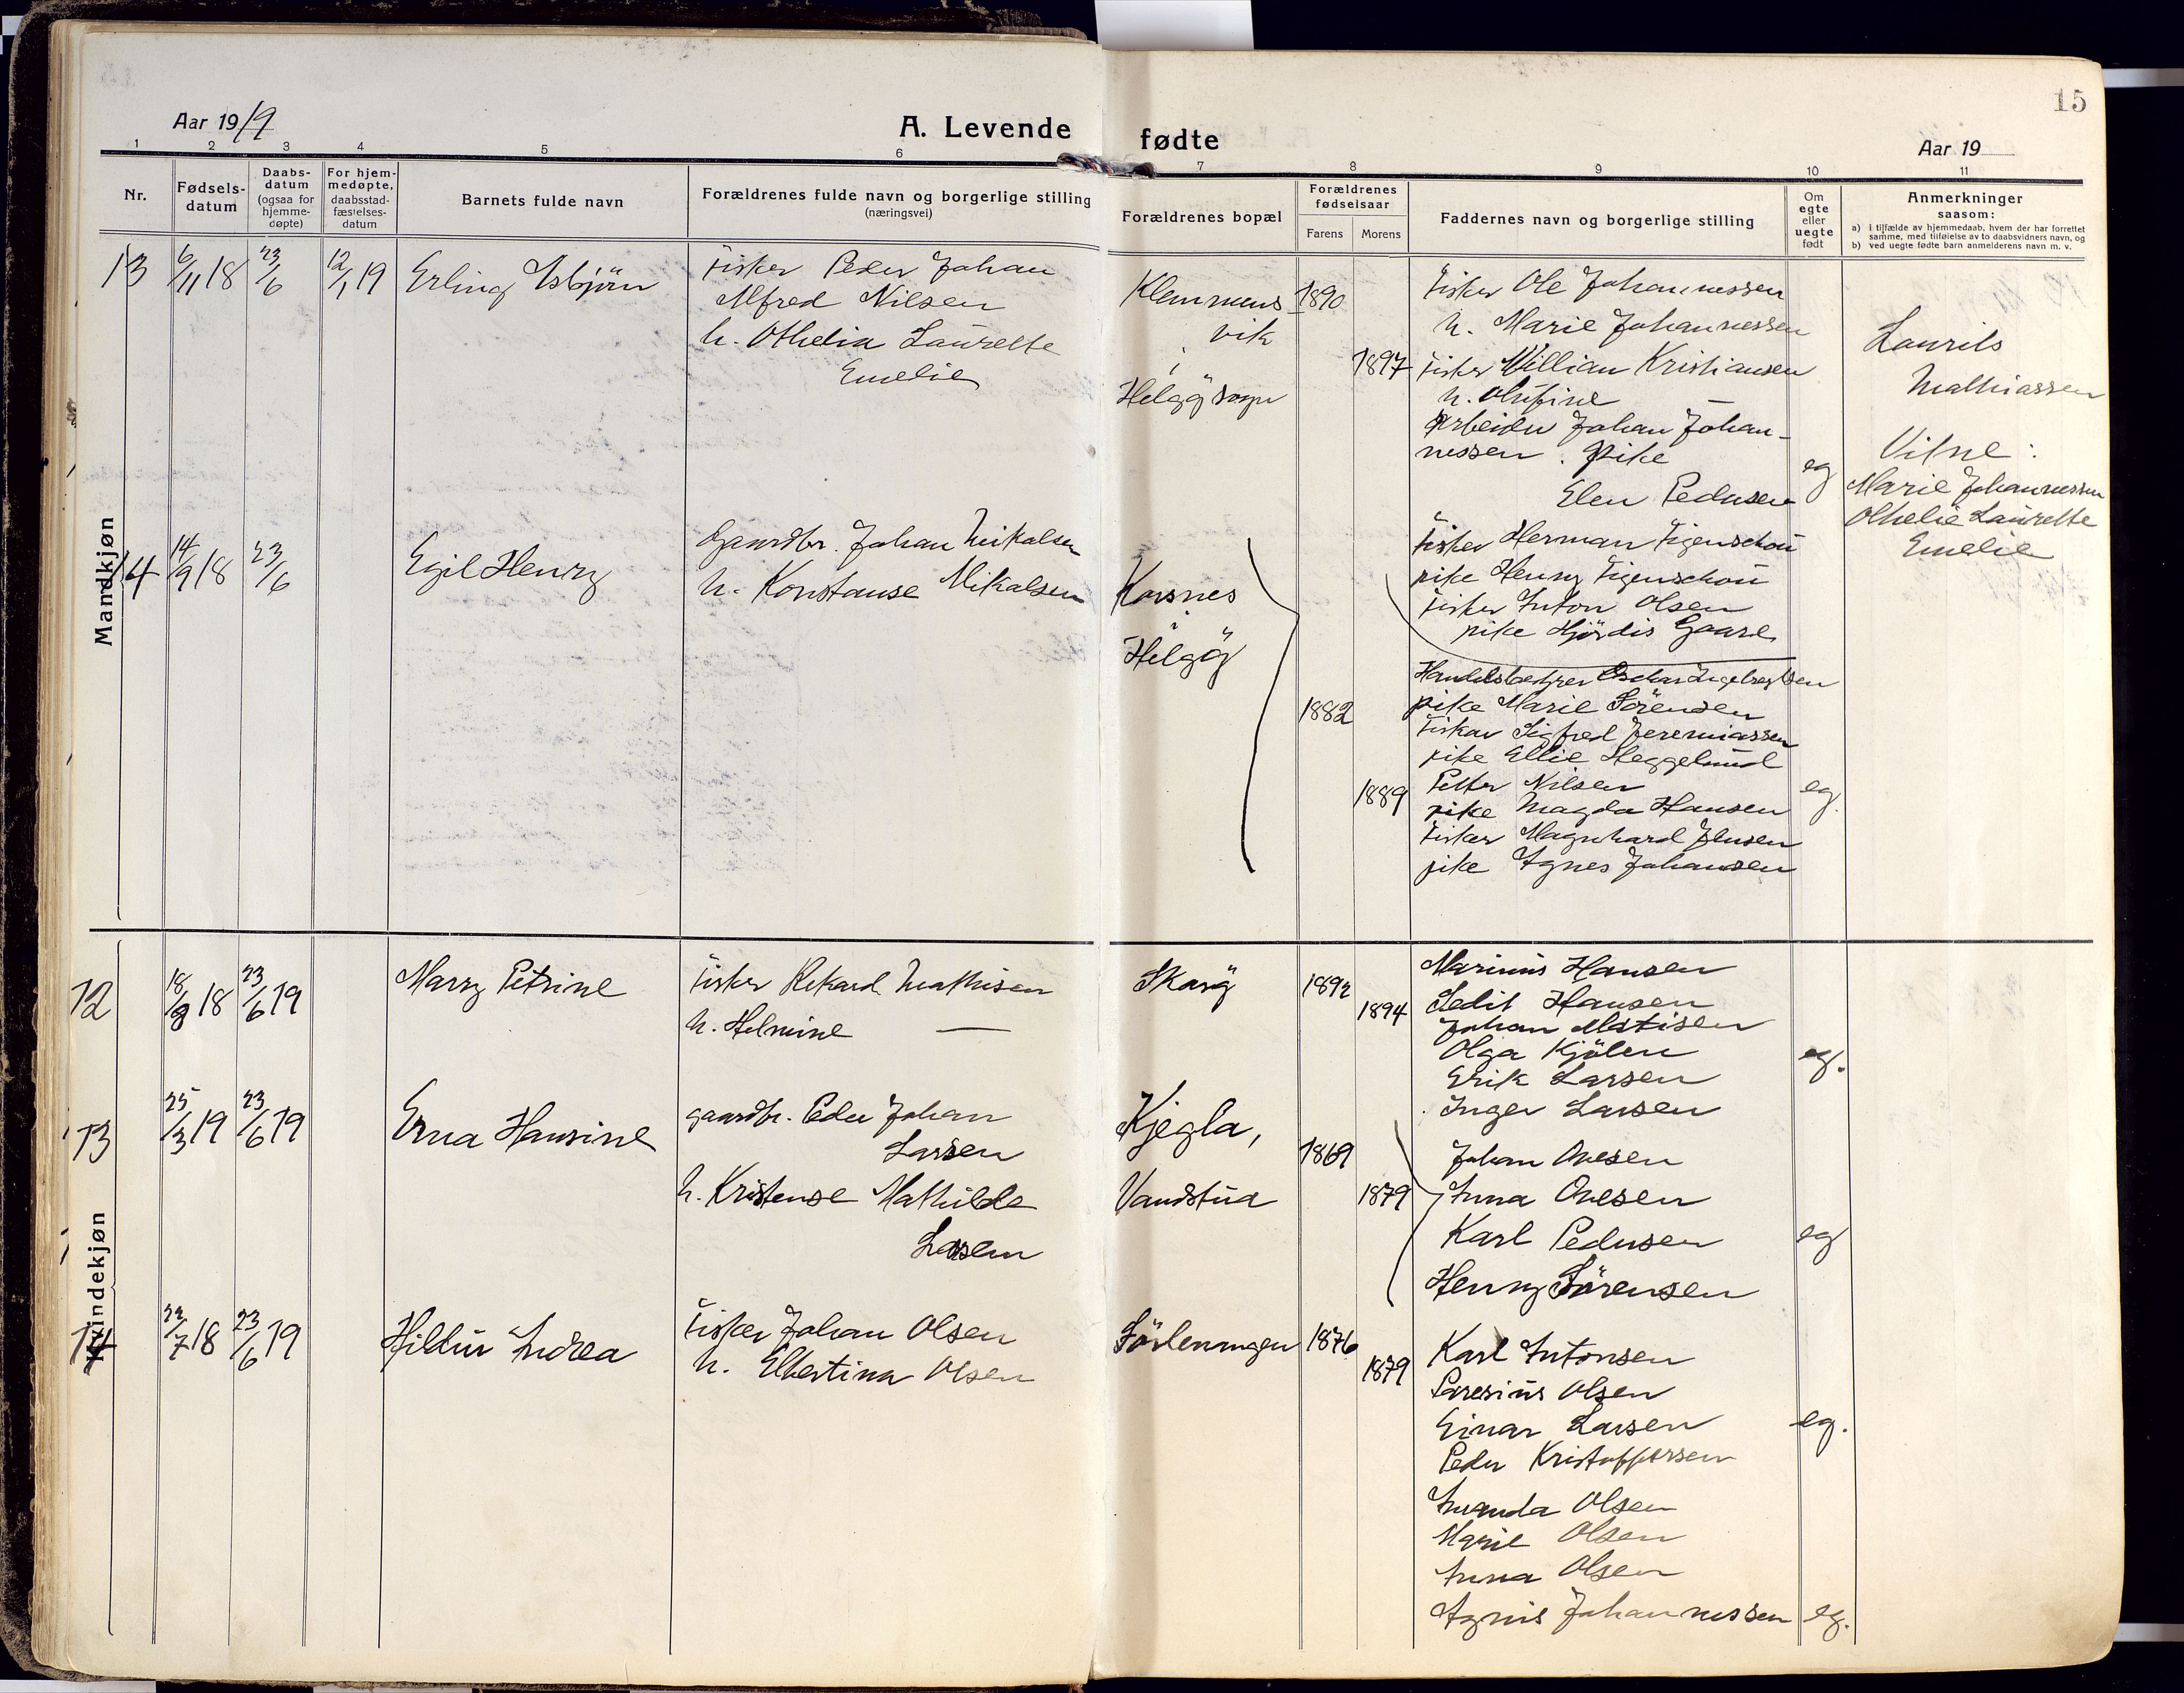 15
Aar 1919
A. Levende fødte
Aar 19
1 2 3 4 5 6 7 8 9 10 11
Nr.
Fødsels-
datum
Daabs-
datum
(ogsaa for
hjemme-
døpte)
For hjem-
medøpte,
daabsstad-
fæstelses-
datum
Barnets fulde navn
Forældrenes fulde navn og borgerlige stilling
(næringsvei)
Forældrenes bopæl
Forældrenes
fødselsaar
Farens
Morens
Faddernes navn og borgerlige stilling
Om
egte
eller
uegte
født
Anmerkninger
saasom:
a) i tilfælde av hjemmedaab, hvem der har forrettet
samme, med tilføielse av to daabsvidners navn, og
b) ved uegte fødte barn anmelderens navn m. v.
Mandkjøn
13
6/11 18
23/6
12/1 19
Erling Asbjörn
Fisker Peder Johan
Alfred Nilsen
h. Othelia Laurette
Emelie
Klemmens
vik
i
Helgö sogn
1890
1897
Fisker Ole Johannessen
h. Marie Johannessen
Fisker Villian Kristiansen
h. Olufine —
Arbeider Johan Johan-
nessen. Pike
Elen Pedersen
eg
Laurits
Mathiassen
Vitne:
Marie Johannessen
Othelie Laurette
Emelie
14
14/9 18
23/6
Egil Henry
Gaardbr. Johan Mikalsen
h. Konstanse Mikalsen
Karsnes
Helgö
1882
1889
Fisker Herman Figenschou
pike Henny Figenschou
Fisker Anton Olsen
pike Hjördis Gaare
Handelsbetjen Oscar Ingebregtsen
pike Marie Sörensen
Fisker Sigfred Jeremiassen
pike Ellie Heggelund
Petter Nilsen
pike Magda Hansen
Fisker Magnhard Jensen
pike Agnes Johansen
eg.
Kvindekjøn
12
18/9 18
23/6 19
Marry Petrine
Fisker Rikard Mathisen
h. Helmine —
Skarö
1892
1894
Marinus Hansen
Sedit Hansen
Johan Matisen
Olga Kjölen
Erik Larsen
Inger Larsen
eg.
13
25/3 19
23/6 19
Erna Hansine
gaardbr. Peder Johan
Larsen
h. Kristense Mathilde
Larsen
Kjegla,
Vandstua
1869
1879
Johan Ovesen
Anna Ovesen
Karl Pedersen
Henny Sörensen
eg
14
22/7 18
23/6 19
Hildur Andrea
Fisker Johan Olsen
h. Elbertina Olsen
Sörlenangen
1876
1879
Karl Antonsen
Saresius Olsen
Einar Larsen
Peder Kristoffersen
Amanda Olsen
Marie Olsen
Anna Olsen
Agnis Johannessen
eg.
eg.